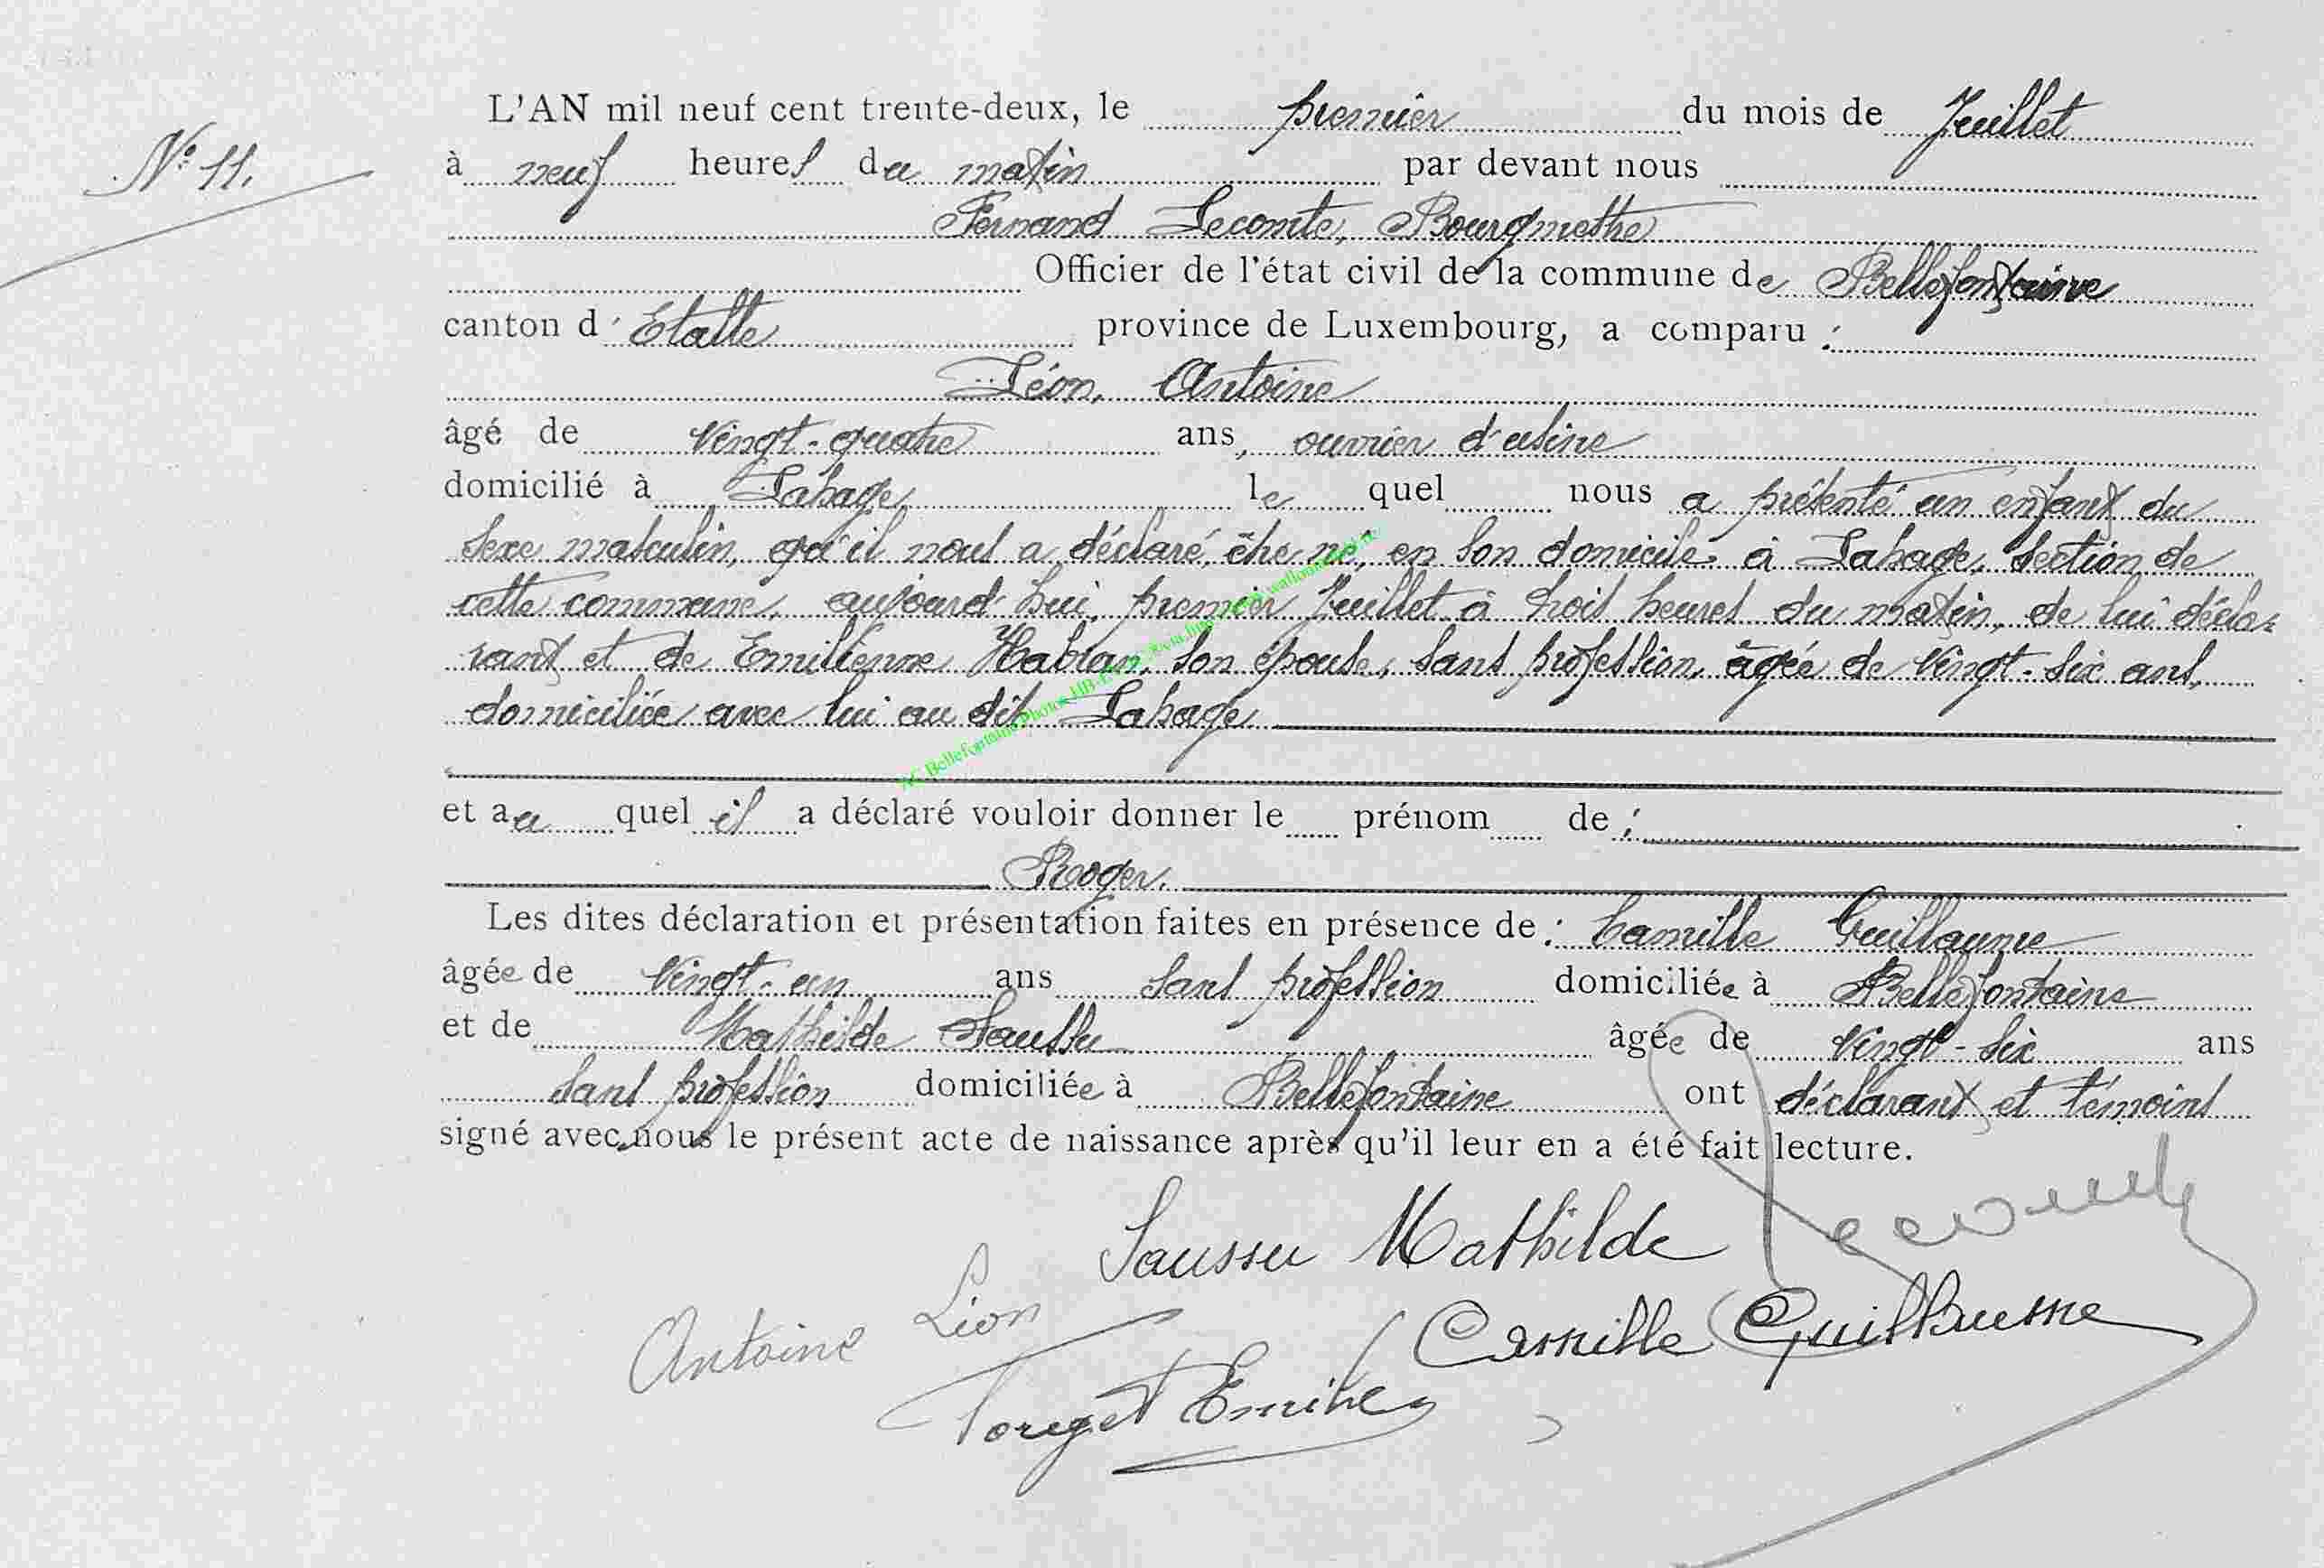 N° 11.
L'AN mil neuf cent trente-deux, le premier du mois de Juillet
à neuf heures du matin par devant nous
Fernand Lecomte, Bourgmestre
Officier de l'état civil de la commune de Bellefontaine
canton d'Etalle province de Luxembourg, a comparu :
Léon, Antoine
âgé de vingt-quatre ans, ouvrier d'usine
domicilié à Lahage, le quel nous a présenté un enfant du
sexe masculin, qu'il nous a déclaré être né, en son domicile à Lahage, section de
cette commune, aujourd'hui, premier Juillet à trois heures du matin, de lui décla-
rant et de Emilienne Habran, son épouse, sans profession, âgée de vingt-six ans,
domiciliée avec lui au dit Lahage
et au quel il a déclaré vouloir donner le prénom de :
Roger.
Les dites déclaration et présentation faites en présence de : Camille Guillaume
âgée de vingt-un ans sans profession domiciliée à Bellefontaine
et de Mathilde Saussu âgée de vingt-six ans
sans profession domiciliée à Bellefontaine ont déclarant et témoins
signé avec nous le présent acte de naissance après qu'il leur en a été fait lecture.
Saussu Mathilde
Antoine Léon
Camille Guillaume